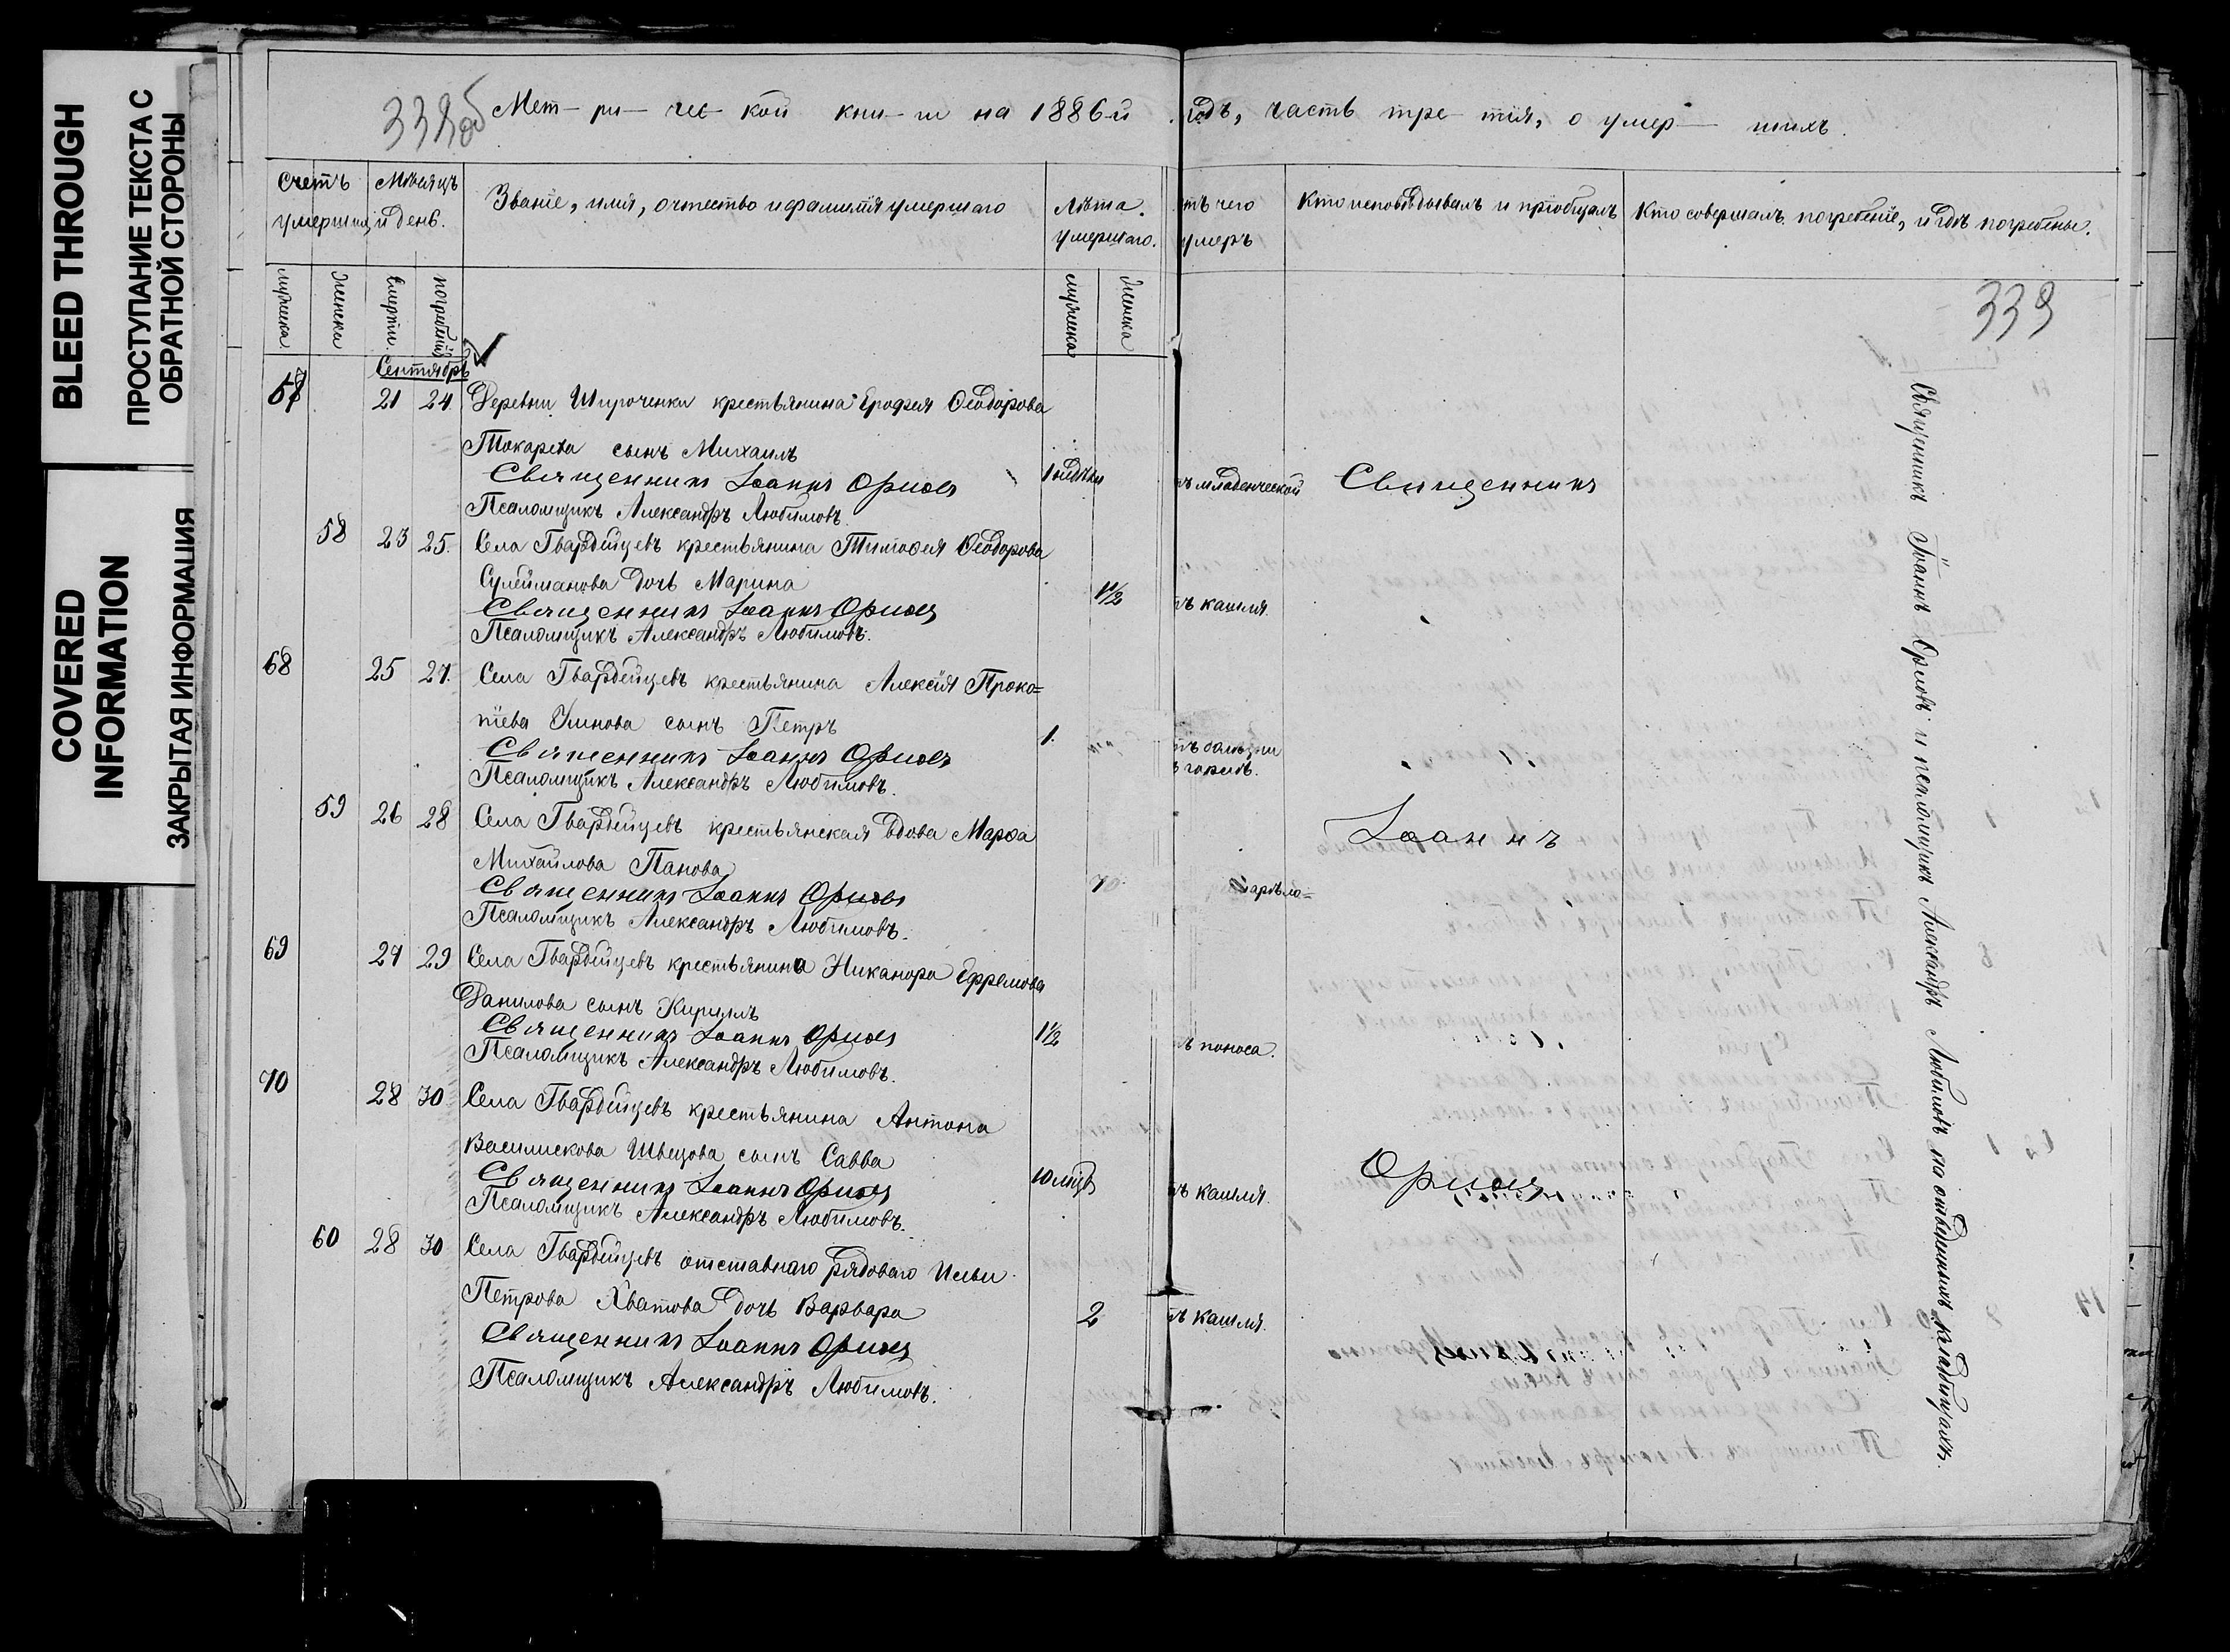 BLEED THROUGH
ПРОСТУПАНИЕ ТЕКСТА С
ОБРАТНОЙ СТОРОНЫ
COVERED
INFORMATION
ЗАКРЫТАЯ ИНФОРМАЦИЯ
338об
Мет-ри-чес-кой кни-ги на 1886-й годъ, часть тре-тія, о умер-шихъ.
339
Счетъ умершихъ
Мѣсяцъ и день.
Званіе, имя, отчество и фамилія умершаго
Лѣта умершаго.
тъ чего умеръ
Кто исповѣдывалъ и пріобщалъ
Кто совершалъ погребеніе, и гдѣ погребены.
мужска
женска
смерти.
погребенія
мужска
женска
Сентябрь
21 24. Деревни Широченки крестьянина Ерофея Ѳеодорова
Токарева сынъ Михаилъ
Священникъ Іоаннъ Орловъ
1 недѣли
младенческой
Псаломщикъ Александръ Любимовъ.
58 23 25. Села Гвардейцевъ крестьянина Тимоѳея Ѳеодорова
Сулейманова дочь Марина
1½
тъ кашля.
Священникъ Іоаннъ Орловъ
Псаломщикъ Александръ Любимовъ.
68 25 27. Села Гвардейцевъ крестьянина Алексія Проко=
піева Улинова сынъ Петръ
1.
тъ болѣзни
горлѣ.
Священникъ Іоаннъ Орловъ
Псаломщикъ Александръ Любимовъ.
59 26 28 Села Гвардейцевъ крестьянская вдова Марѳа
Михайлова Панова
70
Священникъ Іоаннъ Орловъ
Псаломщикъ Александръ Любимовъ.
69 27 29 Села Гвардейцевъ крестьянина Никанора Ефремова
Данилова сынъ Кириллъ
Священникъ Іоаннъ Орловъ
1½
тъ поноса.
Псаломщикъ Александръ Любимовъ.
70 28 30 Села Гвардейцевъ крестьянина Антона
Василискова Швецова сынъ Савва
Священникъ Іоаннъ Орловъ
10 мцв
тъ кашля.
Псаломщикъ Александръ Любимовъ.
60 28 30 Села Гвардейцевъ отставнаго рядоваго Ильи
Петрова Хватова дочь Варвара
2
тъ кашля.
Священникъ Іоаннъ Орловъ
Псаломщикъ Александръ Любимовъ.
Священникъ
Іоаннъ
Орловъ
Священникъ Іоаннъ Орловъ и псаломщикъ Александръ Любимовъ на отведенныхъ кладбищахъ.